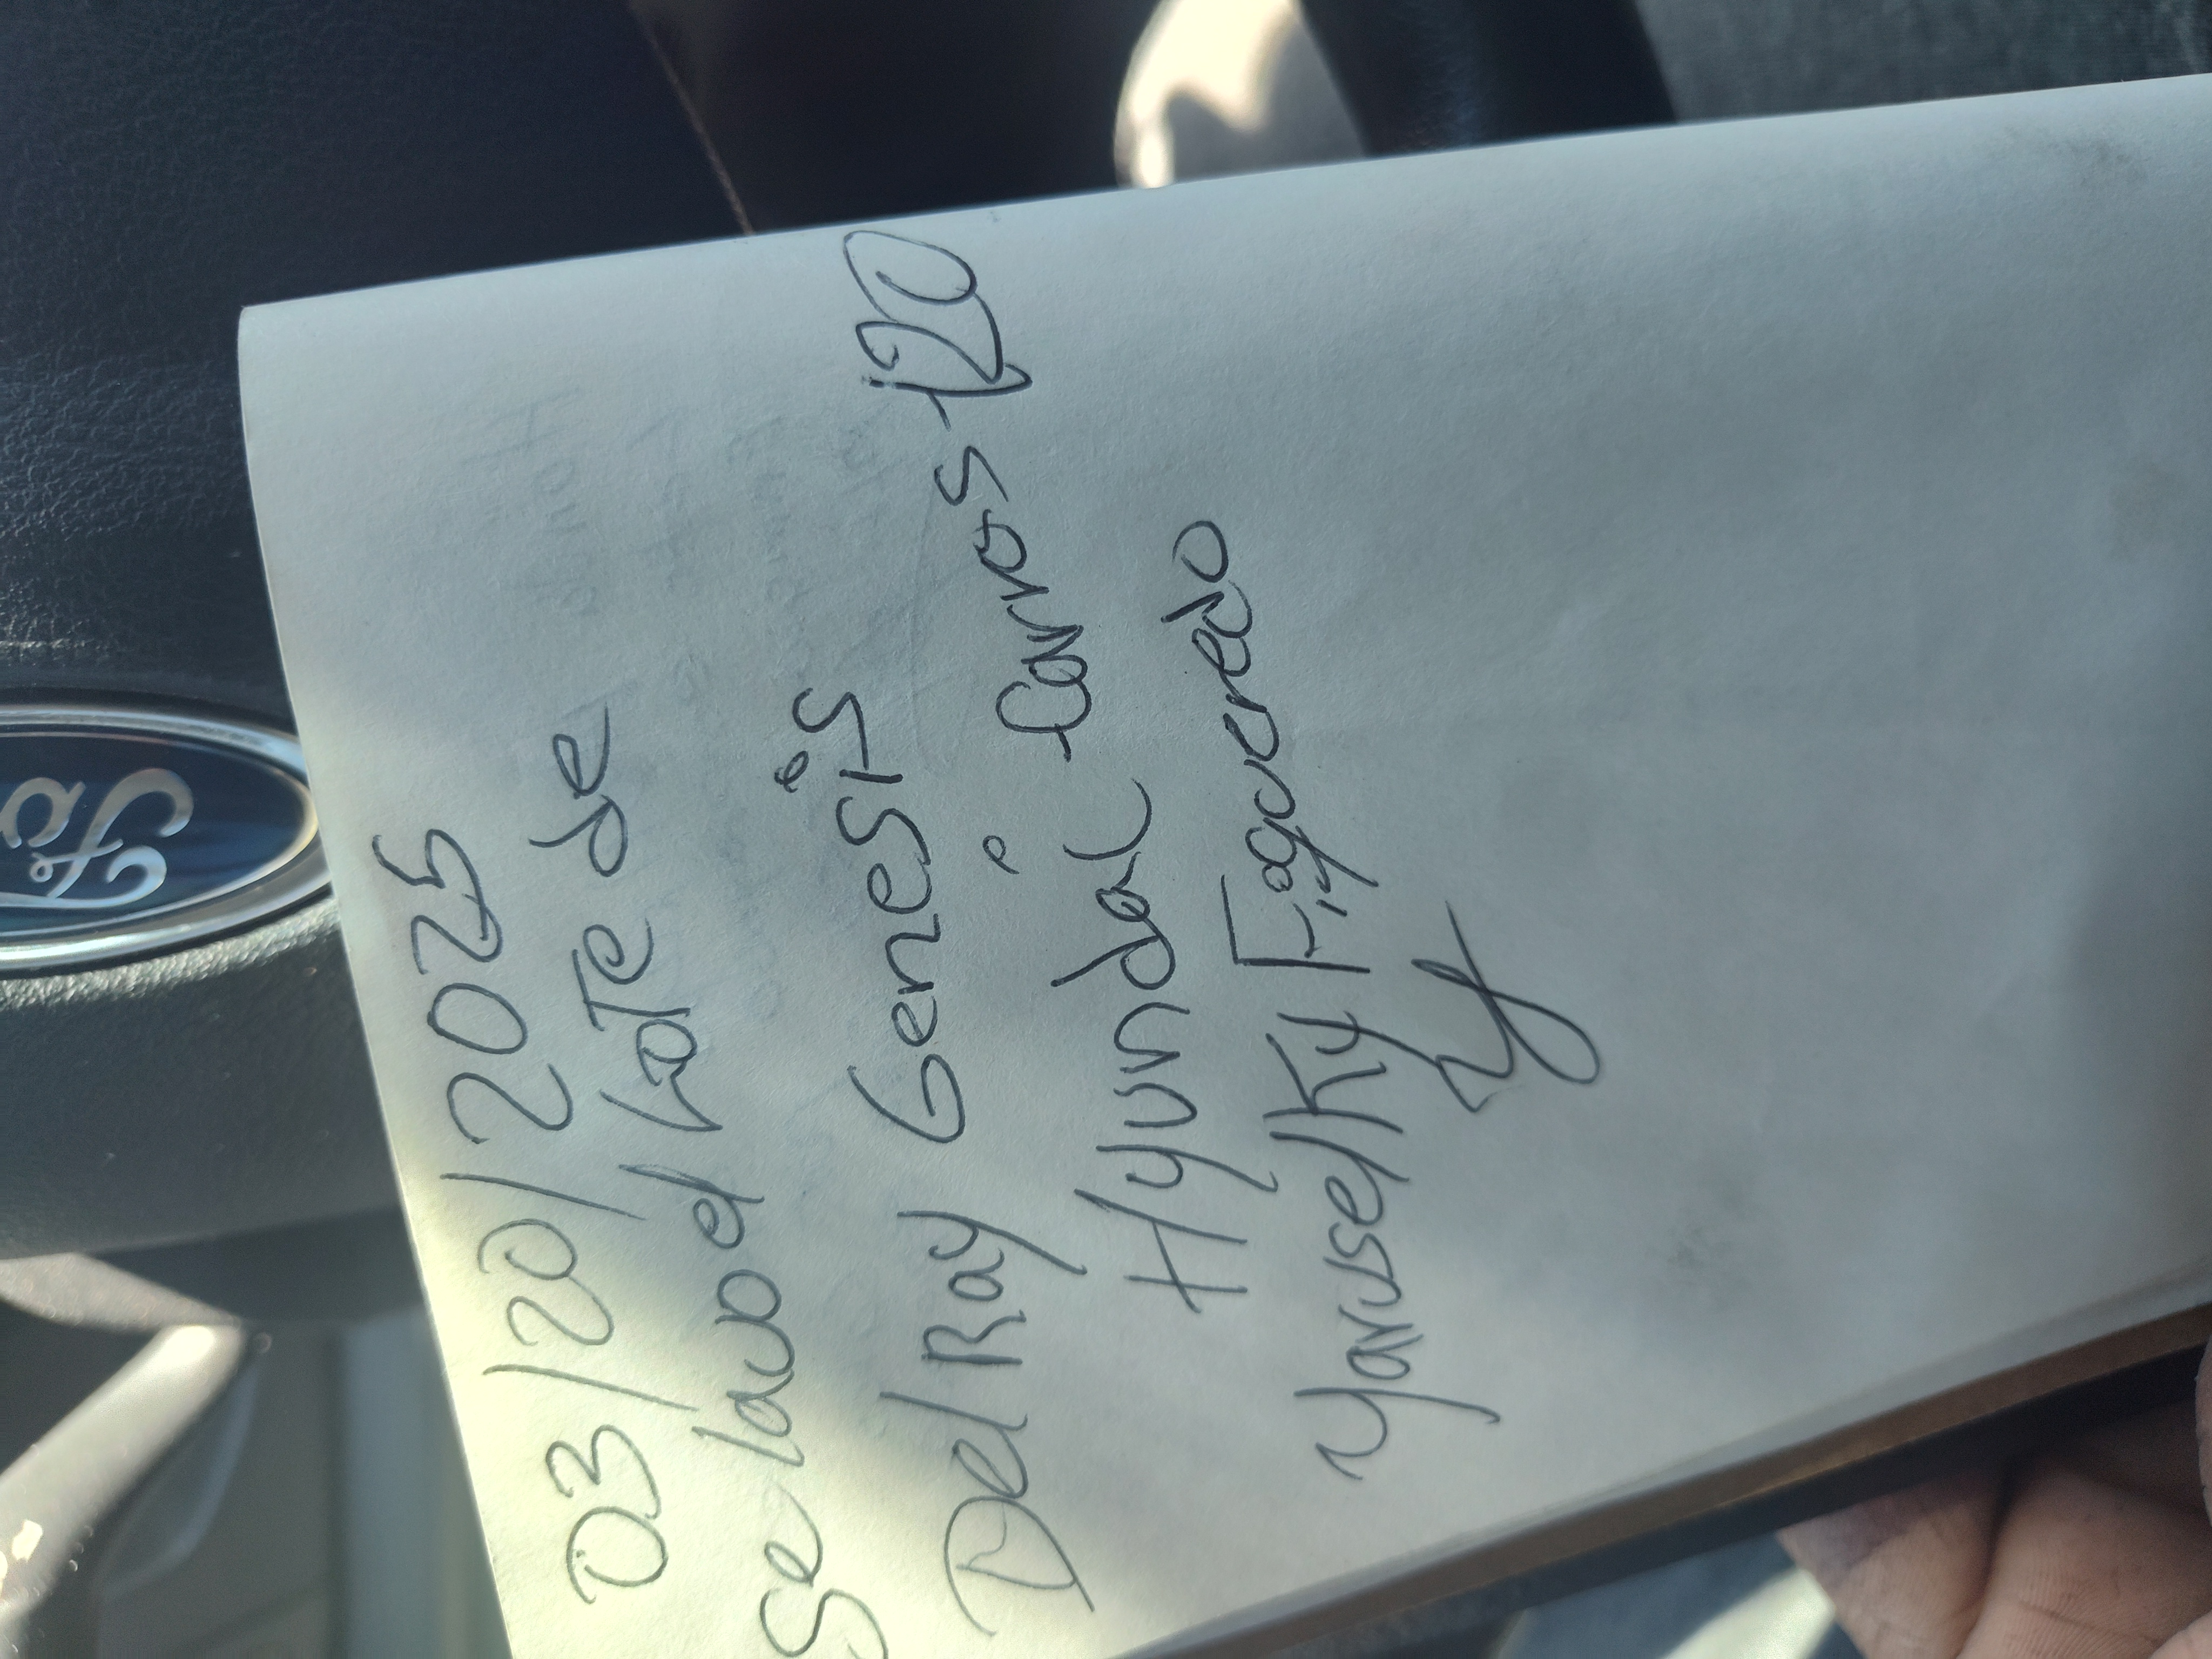 03/20/2025
Se lavo el Lote de
Del Ray Genesis
Hyundai - Carros - 120
Yaruselky Figueredo
Fo